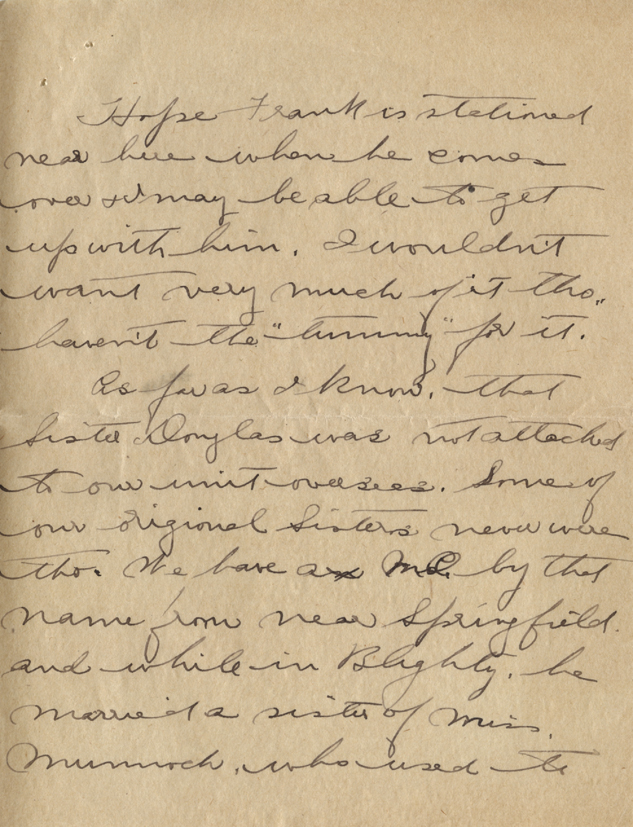 Hope Frank is stationed
near here when he comes
over & I may be able to get
up with him. I wouldn't
want very much of it tho,,
haven't the "tummy" for it.
As far as I know, that
Sister Douglas was not attached
to our unit overseas. Some of
our origional Sisters never were
tho. We have a M.O. by that
name from near Springfield.
and while in Blighty, he
married a sister of Miss.
Murnoch, who used to